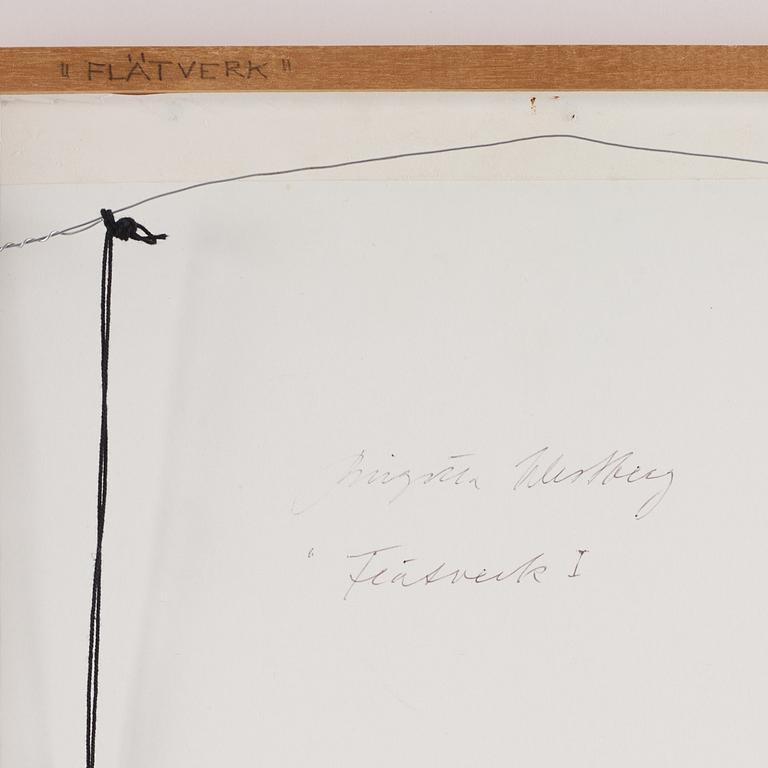 "FLÄTVERK"
Birgitta Westberg
" Flätverk I